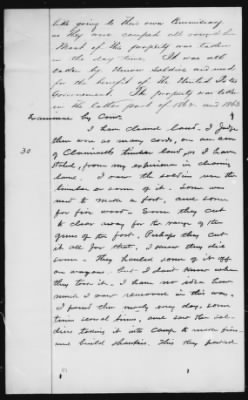 like going to their own Commissary
as they were camped all around him
Most of the property was taken
in the day time. It was all
taken by Union soldiers and used
for the benefit of the United States
Government. The property was taken
in the latter part of 1862 and 1863
Examined by Comr.
I have cleared land. I judge
there were so many cords, on an acre
of timber land, as I have
stated, from my experience in clearing
30
land. I saw the soldiers use the
timber or some of it. Some was
used to make a fort, and some
for fire wood. Some they cut
to clear away for the range of the
guns of the fort. Perhaps they cut
it all for that, I know they did
some. They hauled some of it off
on wagons. but I dont know where
they took it. I have no idea how
much I saw removed in this way.
I passed there nearly every day, some
times several times, and saw the sol-
diers taking it into Camp to make fires
and build shanties. This they packed